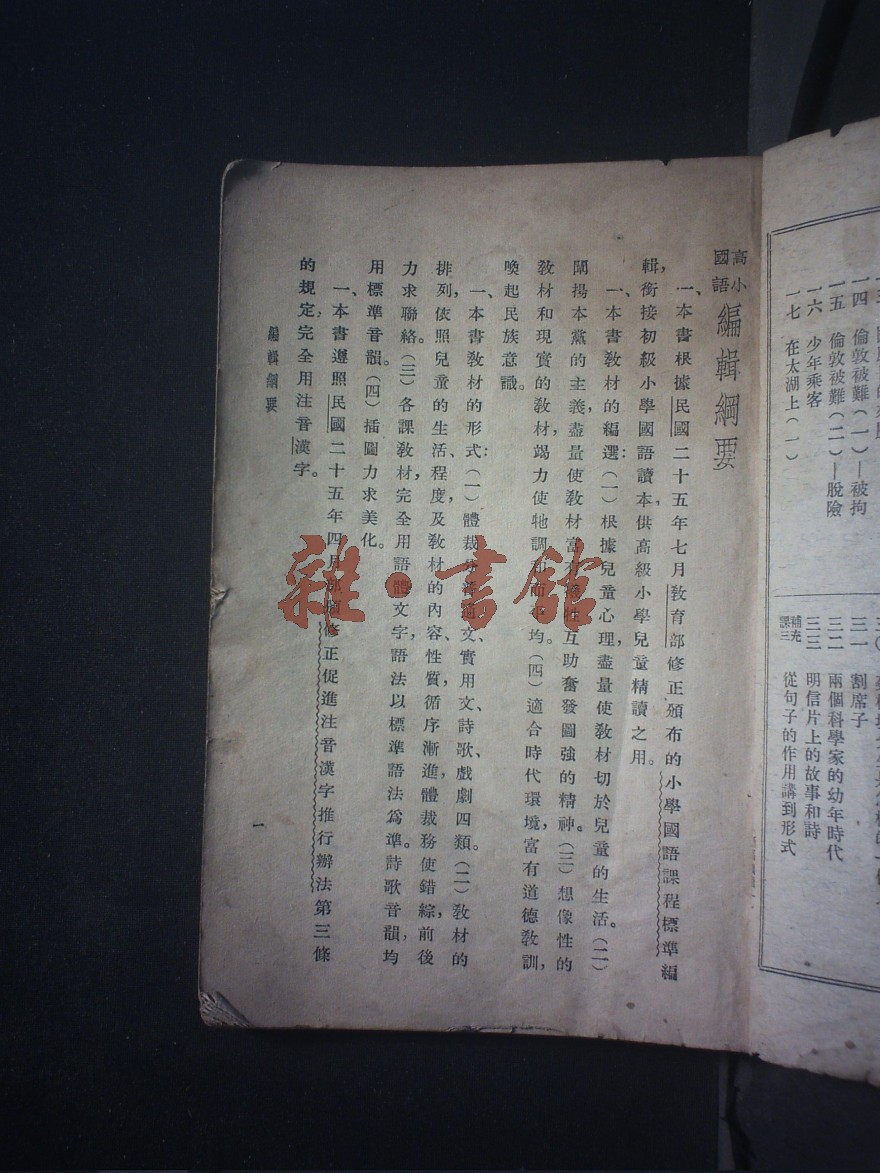 一三
一四　倫敦被難（一）—被拘
一五　倫敦被難（二）—脫險
一六　少年乘客
一七　在太湖上（一）
三〇
三一　割席子
三二　兩個科學家的幼年時代
三三　明信片上的故事和詩
補充課三　從句子的作用講到形式
高小國語　編輯綱要
一、本書根據民國二十五年七月教育部修正頒布的小學國語課程標準編
輯，銜接初級小學國語讀本，供高級小學兒童精讀之用。
一、本書教材的編選：（一）根據兒童心理，盡量使教材切於兒童的生活。（二）
闡揚本黨的主義，盡量使教材富有互助奮發圖強的精神。（三）想像性的
教材和現實的教材，竭力使牠調和而平均。（四）適合時代環境，富有道德教訓，
喚起民族意識。
一、本書教材的形式：（一）體裁分普通文、實用文、詩歌、戲劇四類。（二）教材的
排列，依照兒童的生活、程度，及教材的內容、性質，循序漸進，體裁務使錯綜，前後
力求聯絡。（三）各課教材，完全用語體文字，語法以標準語法爲準。詩歌音韻，均
用標準音韻。（四）插圖力求美化。
一、本書遵照民國二十五年四月部頒修正促進注音漢字推行辦法第三條
的規定，完全用注音漢字。
編輯綱要
一
雜·書館